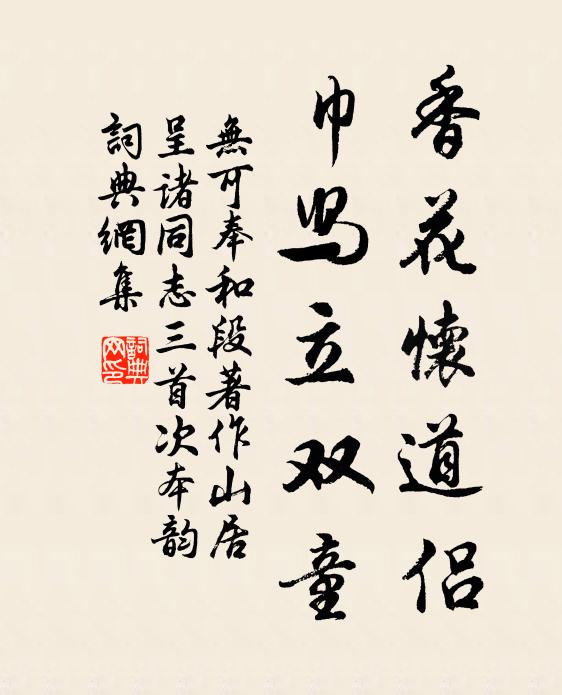 香花懷道侶
巾舄立双童
無可奉和段著作山居
呈诸同志三首次本韵
詞典網集
詞典
网印